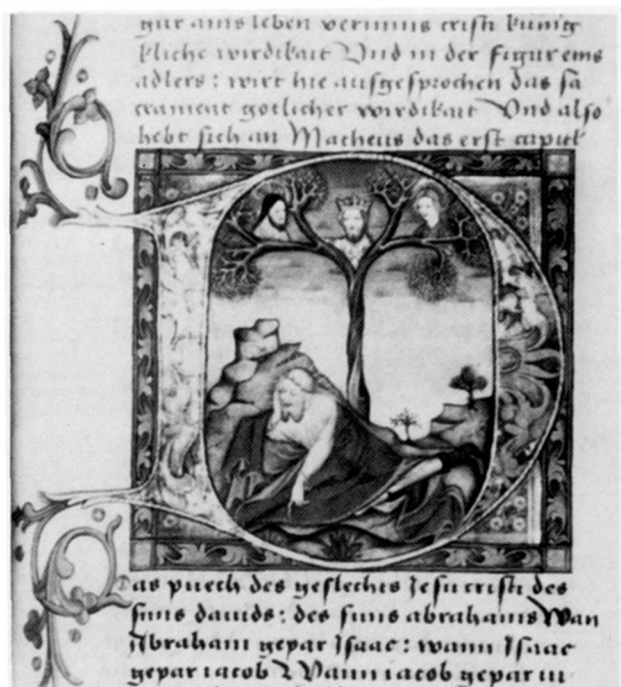 gur ains leben vernims cristi kunig
kliche wirdikait Und in der figur eins
adlers : wirt hie ausgesprochen das sa
crament gotlicher wirdikait Und also
hebt sich an Matheus das erst capitel
Das puech des geslechts Jesu cristi des
suns dauids : des suns abrahams Wan
Abraham gepar Isaac : wann Isaac
gepar iacob Wann iacob gepar iu